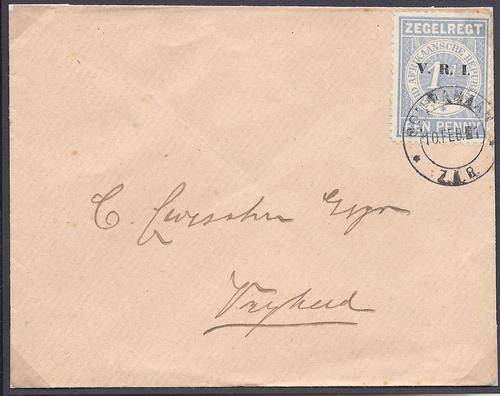 ZEGELREGT
ID AFRIKAANSCHE REPUBL
1
V. R. I.
EN PENNY
10.FEB. 1
Z.A.R.
C. Esqr
Vryheid